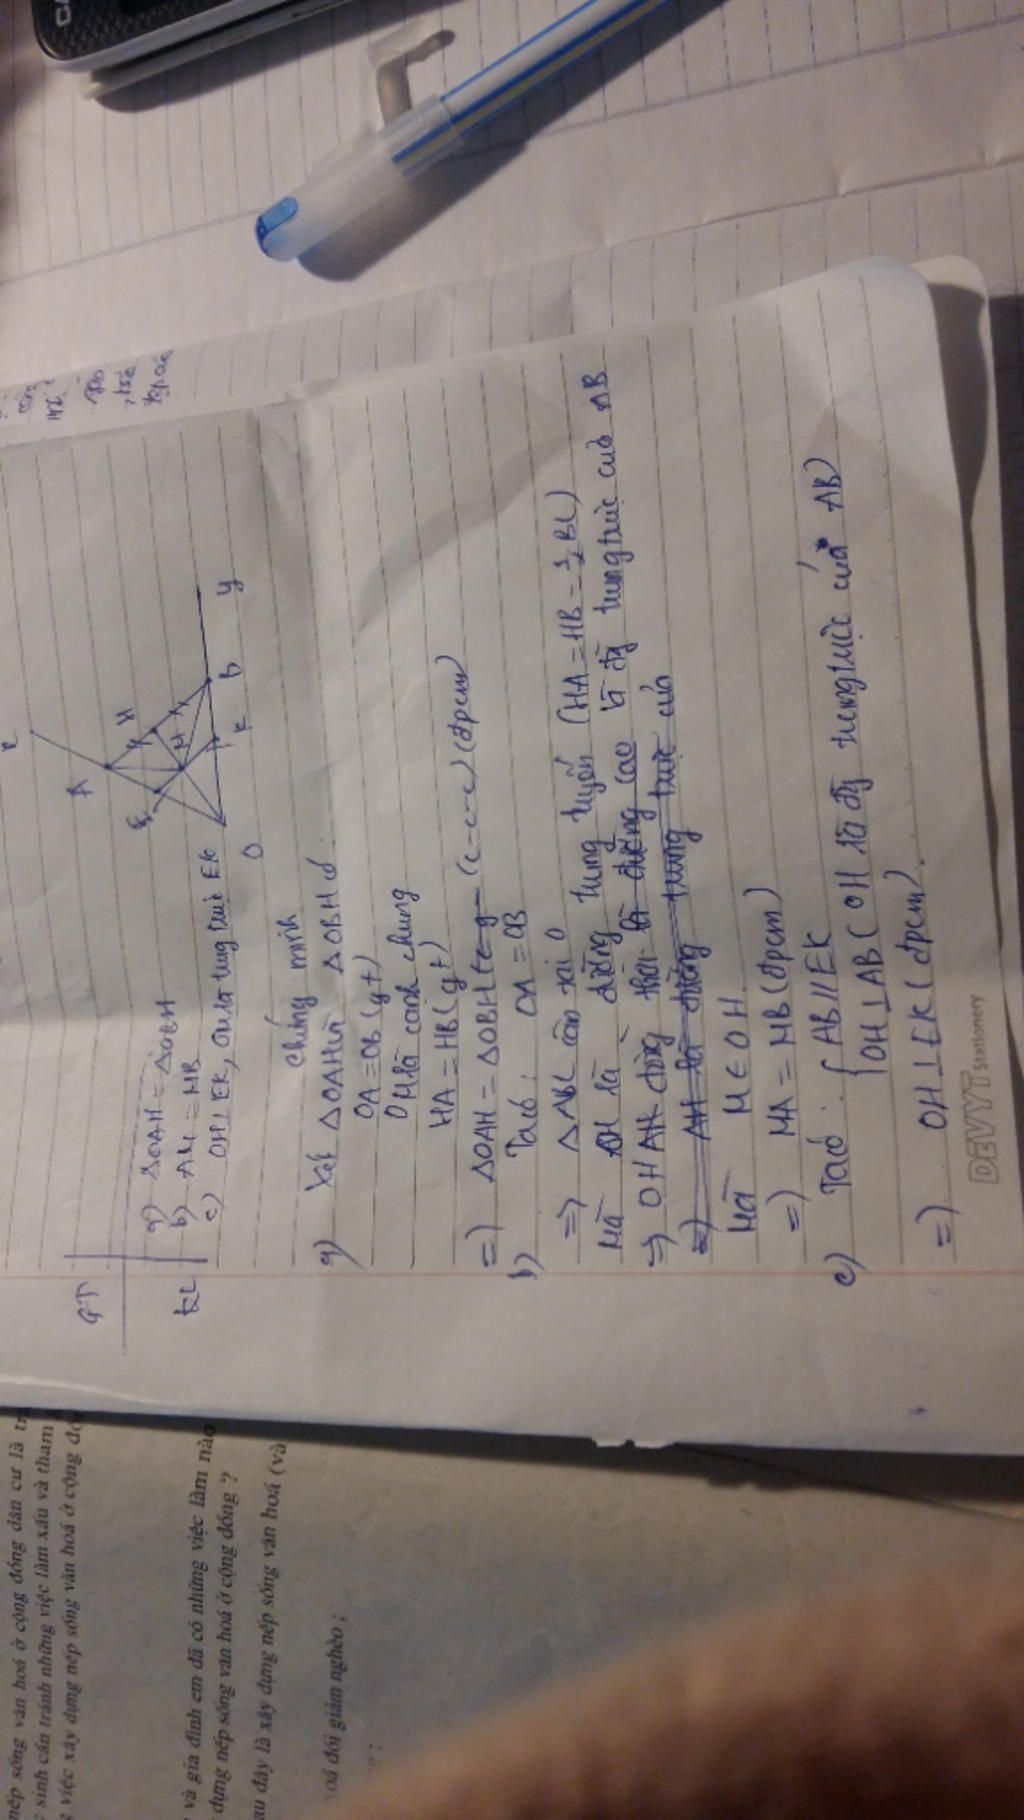 GT
KL
a) ΔOAH = ΔOBH
b) AM = MB
c) OH ⊥ EK, OH là trung trực EK
x
A
E
H
M
O
K
B
y
Chứng minh
a) Xét ΔOAH và ΔOBH có:
OA = OB (gt)
OH là cạnh chung
HA = HB (gt)
=) ΔOAH = ΔOBH (c-c-c) (đpcm)
b) Ta có: OA = OB
=) ΔABC cân tại O
Mà OH là đường trung tuyến (HA = HB = 1/2 BC)
=) OH đồng thời là đường cao là đg trung trực của AB
=) AH là đường trung trực của
Mà M ∈ OH.
=) MA = MB (đpcm)
c) Ta có: { AB // EK
OH ⊥ AB (OH là đg trung trực của AB)
=) OH ⊥ EK (đpcm).
DEVYT Stationery
nếp sống văn hoá ở cộng đồng dân cư là
sinh cần tránh những việc làm xấu và tham
việc xây dựng nếp sống văn hoá ở cộng
và gia đình em đã có những việc làm nào
dựng nếp sống văn hoá ở cộng đồng ?
au đây là xây dựng nếp sống văn hoá (và
xoá đói giảm nghèo ;